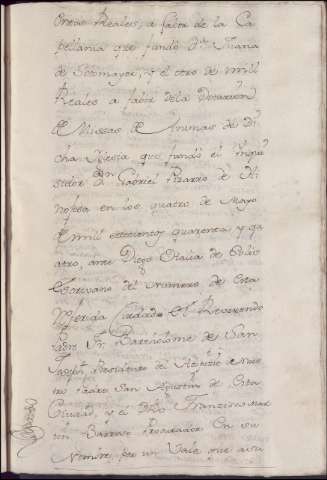 Reales, a fabor de la Ca
pellania que fundó Dª Juana
de Sotomayor, y el otro de mill
Reales a fabor dela
de Missas de Animas de di
cha Iglesia que fundó el Inqui
sidor Dn Gabriel Pizarro de Hi
nojosa en los quatro de Mayo
de mill settecientos quarenta y qu
atro, ante Diego de Solis
Escrivano del numero de esta
Merida El Reverendo
Padre Fr. Bartolome de San
Joseph Presidente del Hospicio de Nues
tro Padre San Agustin de esta
Ciudad, y el dho Francisco Mar
tin Barrado Procurador En su
Nombre, por un Vale que